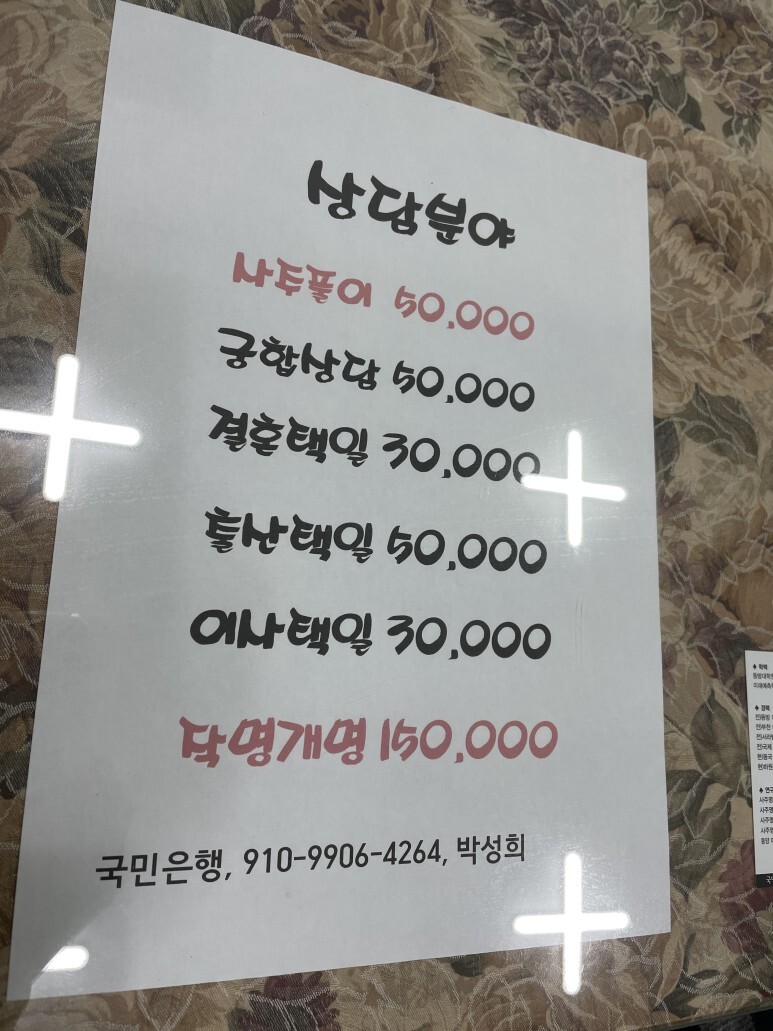 상담분야
사주풀이 50,000
궁합상담 50,000
결혼택일 30,000
출산택일 50,000
이사택일 30,000
작명개명 150,000
국민은행, 910-9906-4264, 박성희
♠ 학력
♠ 경력
♠ 연구